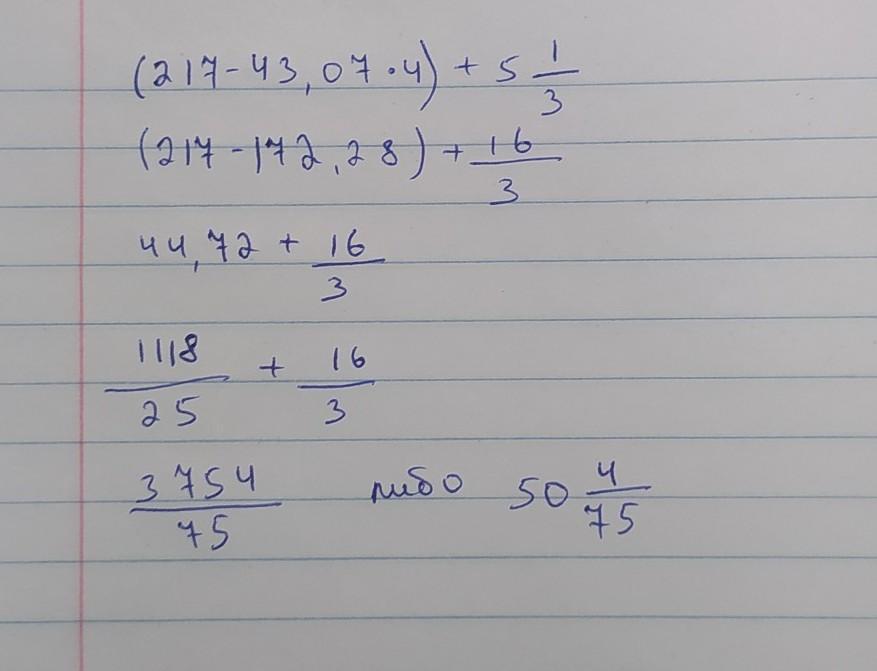 (217-43,07·4) + 5 1/3
(217-172,28) + 16/3
44,72 + 16/3
1118/25 + 16/3
3754/75 либо 50 4/75